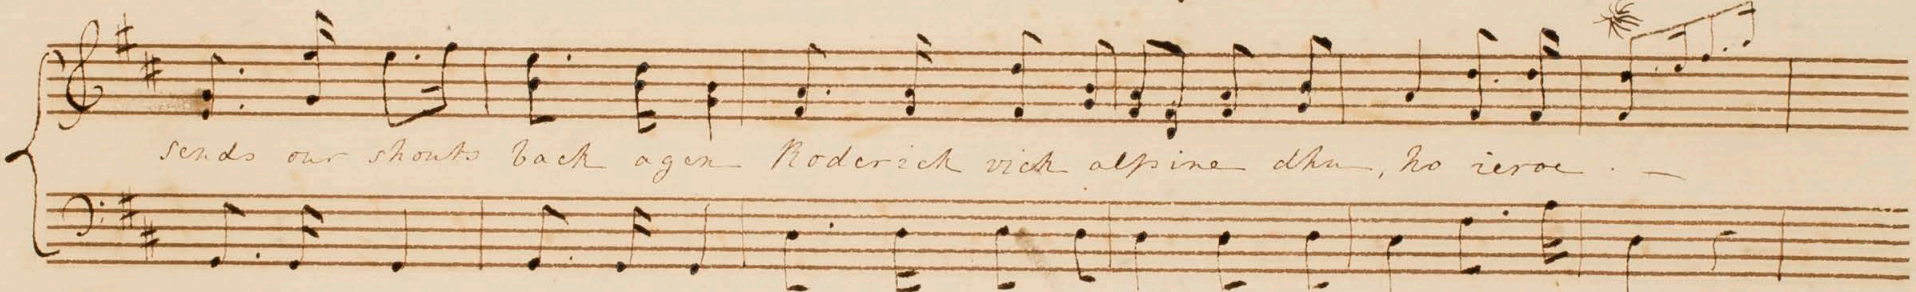 sends our shouts back agen Roderick vich alpine dhu, ho ieroe . —